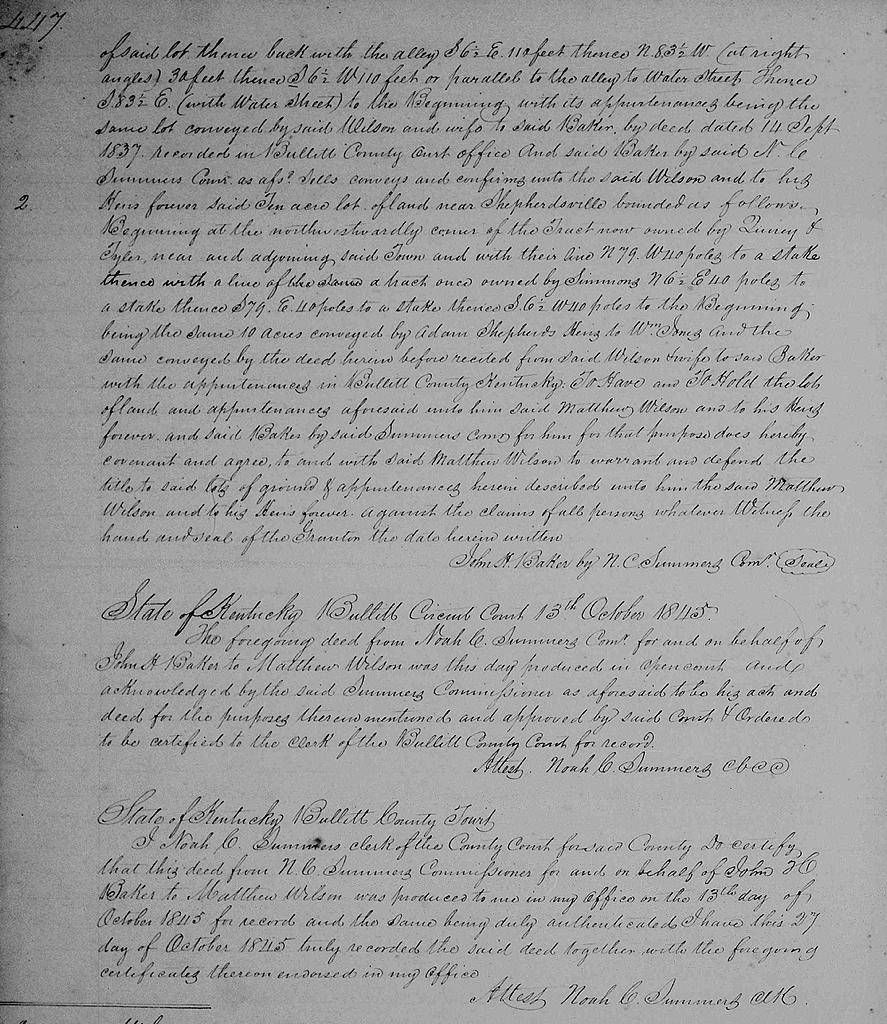 447.
of said lot thence back with the alley S 6½ E. 110 feet thence N. 83½ W (at right
angles) 30 feet thence S 6½ W 110 feet or parallel to the alley to Water Street Thence
S. 83½ E. (with Water Street) to the Beginning with its appurtenances being the
same lot conveyed by said Wilson and wife to said Baker, by deed dated 14 Sept
1837. recorded in Bullitt County Curt office And said Baker by said N. C.
Summers Comr. as afsd. Sells conveys and confirms unto the said Wilson and to his
2. Heirs forever said Ten acre lot of land near Shepherdsville bounded as follows.
Beginning at the northwestwardly corner of the Tract now owned by Quirey &
Tyler, near and adjoining said Town and with their line N 79. W 40 poles to a stake
thence with a line of the same a tract once owned by Simmons N 6½ E 40 poles to
a stake thence S 79. E. 40 poles to a stake thence S. 6½ W 40 poles to the Beginning
being the same 10 acres conveyed by Adam Shepherds Heirs to Wm Jones and the
same conveyed by the deed herein before recited from said Wilson & wife to said Baker
with the appurtenances in Bullitt County Kentucky. To Have and To Hold the lots
of land and appurtenances aforesaid unto him said Matthew Wilson and to his Heirs
forever. and said Baker by said Summers comr for him for that purpose does hereby
covenant and agree, to and with said Matthew Wilson to warrant and defend the
title to said lots of ground & appurtenances herein described unto him the said Matthew
Wilson and to his Heirs forever. against the claims of all persons whatever Witness the
hand and seal of the Grantor the date herein written
John H. Baker by N. C. Summers Comr. Seal
State of Kentucky Bullitt Circuit Court 13th October 1845.
The foregoing deed from Noah C. Summers Comr for and on behalf of
John H Baker to Matthew Wilson was this day produced in open court and
acknowledged by the said Summers Commissioner as aforesaid to be his act and
deed for the purposes therein mentioned and approved by said Court & Ordered
to be certified to the clerk of the Bullitt County Court for record.
Attest. Noah C. Summers cbcc
State of Kentucky Bullitt County Court
I Noah C. Summers clerk of the County Court for said County Do certify
that this deed from N. C. Summers Commissioner for and on behalf of John H
Baker to Matthew Wilson was produced to me in my office on the 13th day of
October 1845 for record and the same being duly authenticated I have this 27
day of October 1845 truly recorded the said deed together with the foregoing
certificates thereon endorsed in my office
Attest Noah C. Summers clk.